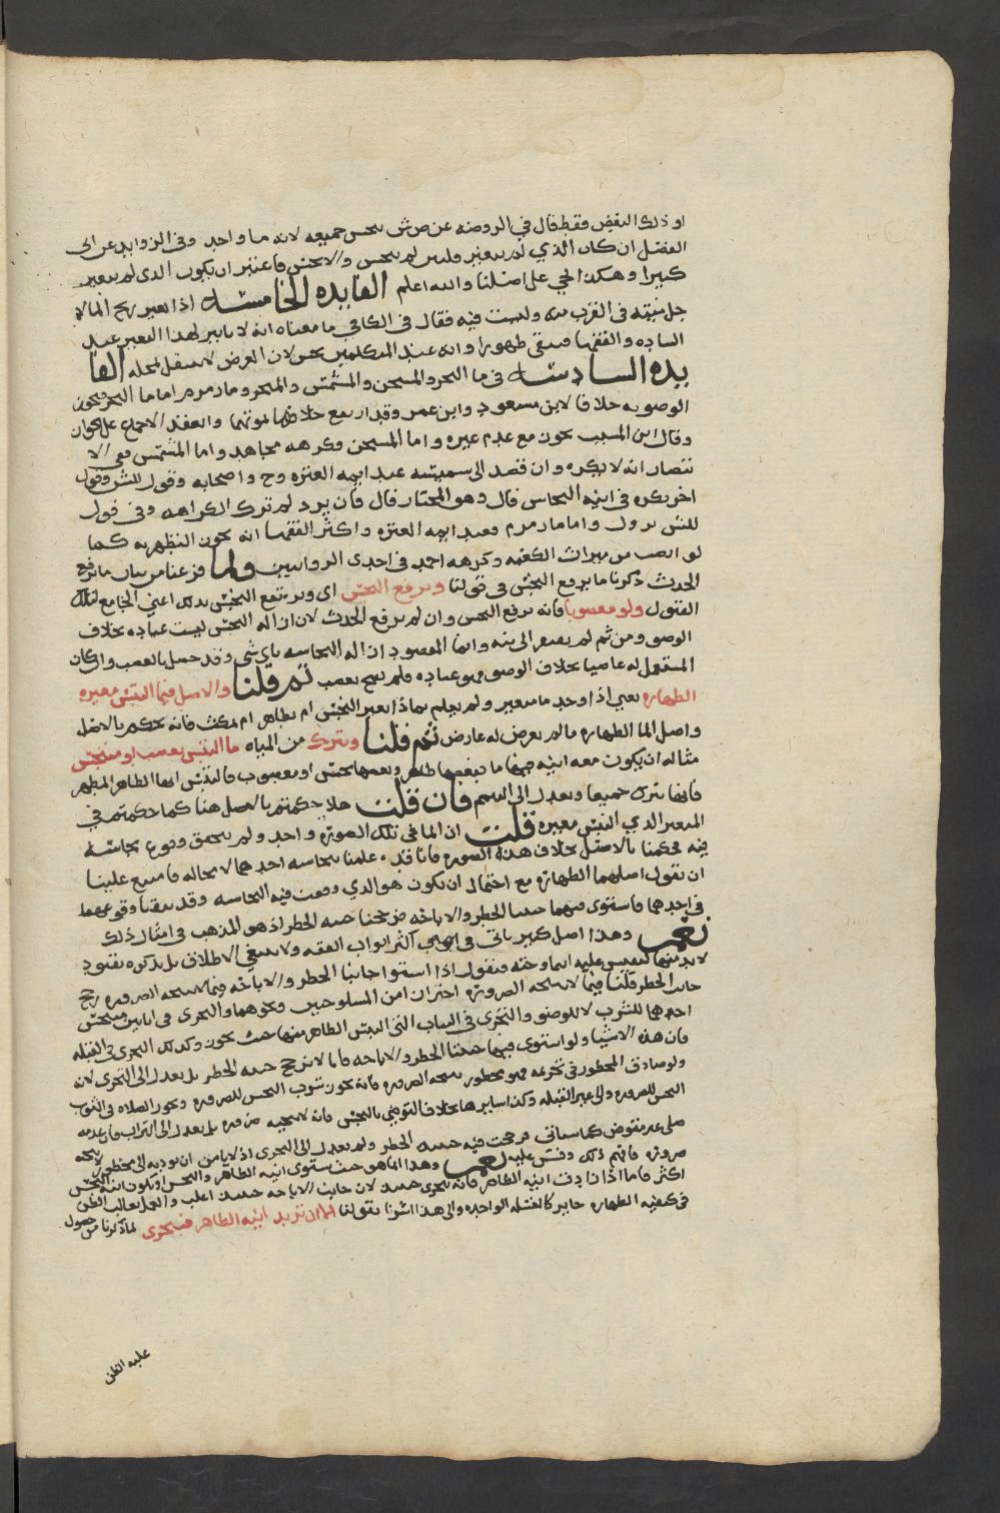 او ذلك البعض فقط قال في الروضه عن ص ش ينجس جميعه لانه ما واحد وفي الزوايد عن ابي
الفضل ان كان الذي لم يتغير قلتين لم ينجس والا نجس فاعتبر ان يكون الذي لم يتغير
كثيرا وهكذا يجي على اصلنا والله اعلم الفايده الخامسه اذا تغير ريح الما لا
جل ميته في القرب منه وليست فيه فقال في الكافي ما معناه انه لا تاثير لهذا التغير عند
الساده والفقها فيبقى طهورا وانه عند المتكلمين نجس لان العرض لا ينتقل محله الفا
يده السادسه في ما البحر والمسخن والمشمس والمبخر وما زمزم اما ما البحر فيجوز
الوضو به خلافا لابن مسعود وابن عمر وقد ارتفع خلافهما بموتهما وانعقد الاجماع على الجواز
وقال ابن المسيب يجوز مع عدم غيره واما المسخن فكرهه مجاهد واما المشمس ففي الا
نتصار انه لا يكره وان قصد الى تشميسه عند ايمه العتره وح واصحابه وقول للش وقول
اخر يكره في انيه النحاس قال وهو المختار قال فان برد لم تزل الكراهه وفي قول
للش تزول واما ما زمزم فعند ايمه العتره واكثر الفقها انه يجوز التطهر به كما
لو انصب من ميزاب الكعبه وكرهه احمد في احدى الروايتين ولما فرغنا من بيان ما يرفع
الحدث ذكرنا ما يرفع النجس في قولنا ويرفع النجس اى ويرتفع النجس بذلك اعني الجامع لتلك
القيود ولو مغصوبا فانه يرفع النجس وان لم يرفع الحدث لان ازاله النجس ليست عباده بخلاف
الوضو ومن ثم لم يفتقر الى نيه وانما المقصود ازاله النجاسه باي شي وقد حصل بالغصب وان كان
المستعمل له عاصيا بخلاف الوضو فهو عباده فلم يصح بغصب ثم قلنا والاصل فيما التبس مغيره
الطهاره يعني اذا وجد ما متغير ولم يعلم بماذا تغير النجس ام بطاهر ام بمكث فانه يحكم بالاصل
واصل الما الطهاره ما لم يعرض له عارض ثم قلنا ويترك من المياه ما التبس بغصب او متنجس
مثاله ان يكون معه انيه فيها ما بعضها طاهر وبعضها نجس او مغصوب فالتبس ايها الطاهر المطهر
فانها تترك جميعا ويعدل الى التيمم فان قلت هلا حكمتم بالاصل هنا كما حكمتم في
المتغير الذي التبس مغيره قلت ان الما في تلك الصوره واحد ولم يتحقق وقوع نجاسه
فيه فحكمنا بالاصل بخلاف هذه الصوره فانا قد علمنا نجاسه احدهما لا محاله فامتنع علينا
ان نقول اصلهما الطهاره مع احتمال ان يكون هو الذي وقعت فيه النجاسه وقد تيقنا وقوعها
في احدهما فاستوى فيهما جنبتا الحظر والاباحه فرجحنا جنبه الحظر اذ هو المذهب في امثال ذلك
نعم وهذا اصل كبير ياتي في اكثر ابواب الفقه ولا ينبغي الاطلاق بل يذكره بقيود
لا بد منها فنقول اذا استوا جانبا الحظر والاباحه فيما لا تبيحه الضروره رجح
جانب الحظر قلنا فيما لا تبيحه الضروره احتراز امن المسلوختين ونحوهما والتحرى في انايين متنجس
احدهما للشرب لا للوضو والتحرى في الثياب التي التبس الطاهر منها حيث يجوز وكذلك التحرى في القبله
فان هذه الاشيا ولو استوى فيها جنبتا الحظر والاباحه فانا لا نرجح جنبه الحظر بل يعدل الى التحرى لانه
ولو صادق المحظور في تحريه فهو محظور تبيحه الضروره فانه يجوز شرب النجس للضروره وتجوز الصلاه في الثوب
النجس للضروره والى غير القبله وكذا سايرها بخلاف التوضي بالنجس فانه لا تبيحه ضروره بل يعدل الى التراب فان عدمه
صلى غير متوض كما سياتي فرجحت فيه جنبه الحظر ولم يعدل الى التحرى اذ لا يامن ان يوديه الى محظور لا تبيحه
ضروره فافهم ذلك وقس عليه نعم وهذا انما هو حيث تستوى انيه الطاهر والنجس او تكون انيه النجس
اكثر فاما اذا زادت انيه الطاهر فانه يتحرى حينئذ لان جانب الاباحه حينئذ اغلب والعمل بغالب الظن
في كيفيه الطهاره جايز كالغسله الواحده والى هذا اشرنا بقولنا الا ان تزيد انيه الطاهر فيتحرى لما ذكرنا من حصول
غلبه الظن